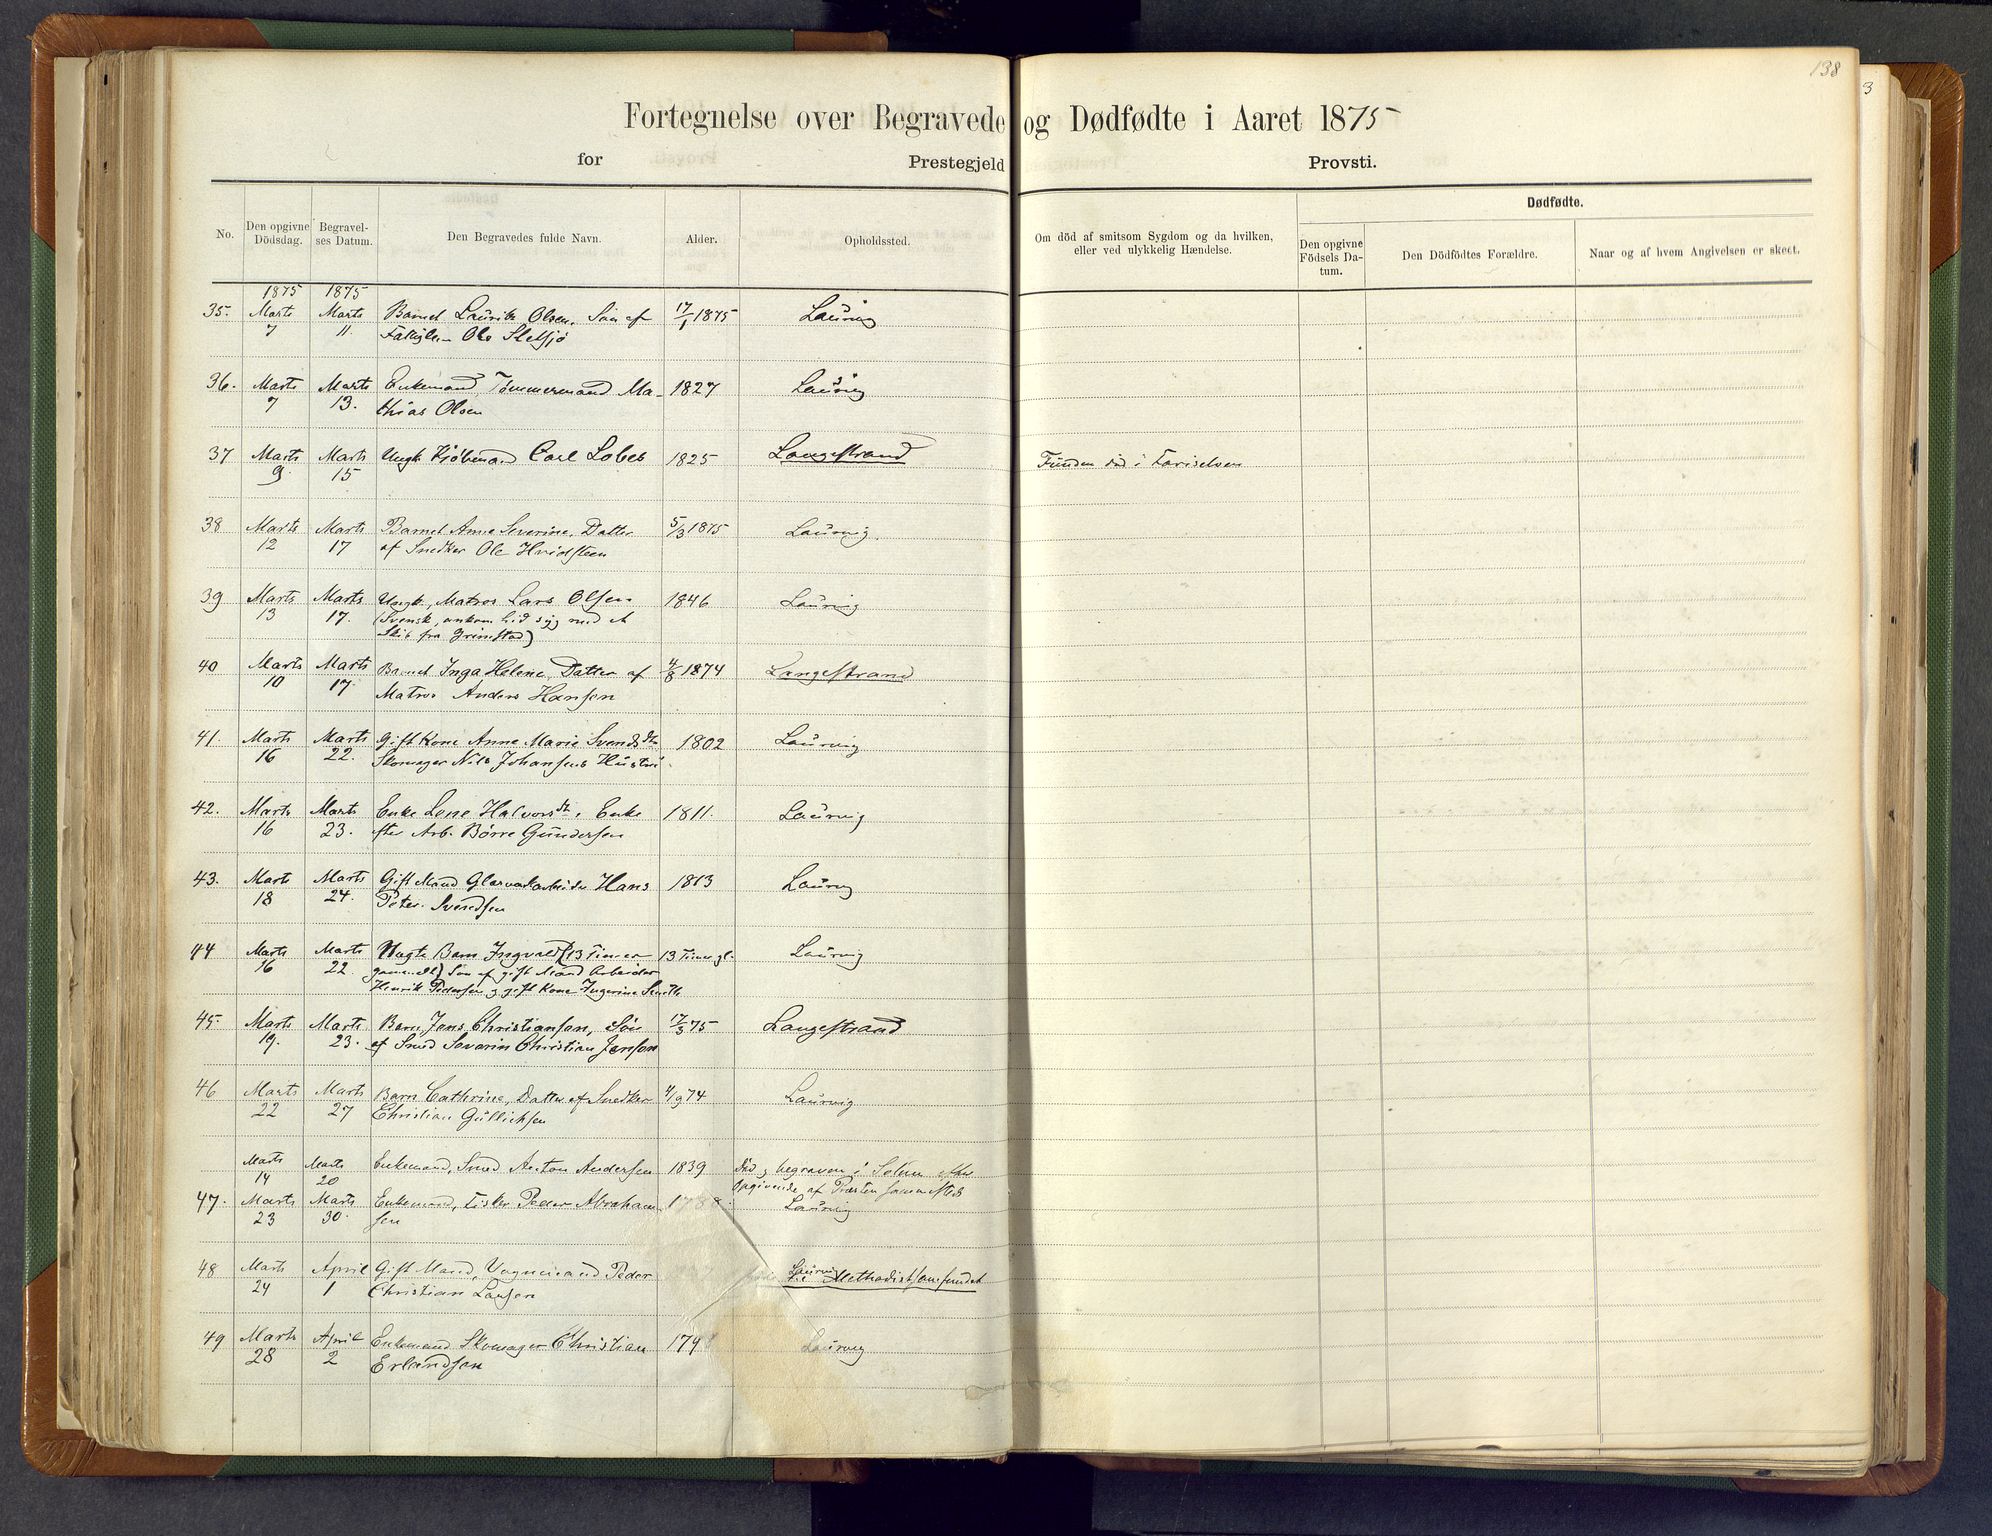 138
3
Fortegnelse over Begravede og Dødfødte i Aaret 1875
for Prestegjeld Provsti.
No. Den opgivne Dödsdag. Begravelses Datum. Den Begravedes fulde Navn. Alder. Opholdssted. Om död af smitsom Sygdom og da hvilken, eller ved ulykkelig Hændelse. Dødfødte.
Den opgivne Födsels Datum. Den Dödfödtes Forældre. Naar og af hvem Angivelsen er skeet.
1875 1875
35. Marts Marts Barnet Laurits Olsen, Søn af 17/1 1875 Laurvig
7 11. Ole
36. Marts Marts Enkemand, Tømmermand Ma- 1827 Laurvig
7 13. thias Olsen
37 Marts Marts Ungk. Kjøbmand Carl 1825 Langestrand Funden død i Farriselven
9 15
38 Marts Marts Barnet Anne Severine, Datter 5/3 1875 Laurvig.
12 17 af Snedker Ole Hvidsteen
39 Marts Marts Ungk., Matros Lars Olsen 1846 Laurvig
13 17. (Svensk, ankom hid syg med et
Skib fra Grimstad)
40 Marts Marts Barnet Inga Helene, Datter af 4/8 1874 Langestrand
10 17. Matros Anders Hansen
41. Marts Marts Gift Kone Anne Marie Svendsdtr 1802 Laurvig
16 22. Skomager Nils Johansens Hustru.
42. Marts Marts Enke Lene Halvorsdt., Enke 1811. Laurvig
16 23. efter Arb. Börre Gundersen
43. Mart Marts Gift Mand Glasværkarbeider Hans 1813 Laurvig
18 24. Peter Svendsen
44 Marts Marts Ægte Barn Ingvald (13 Timer 13 Timer gl. Laurvig
16 22. gammelt) Søn af gift Mand Arbeider
Henrik Pedersen og gift Kone Ingerine
45. Marts Marts Barn Jens Christiansen, Søn 17/3 75 Langestrand
19. 23. af Smed Severin Christian Jensen
46 Marts Marts Barn Cathrine, Datter af Snedker 4/9 74 Laurvig
22 27 Christian Gullichsen
Marts Marts Enkemand, Smed Anton Andersen 1839 Død og begraven i Solum efter
14 20 Opgivende af Præsten sammesteds
47. Marts Marts Enkemand, Fisker Peder Abraham- Laurvig
23 30. sen
48 Marts April Gift Mand, Vognmand Peder Laurvig
24 1 Christian Larsen Methodistsamfundet
49 Marts April Enkemand Skomager Christian Laurvig
28 2 Erlandsen